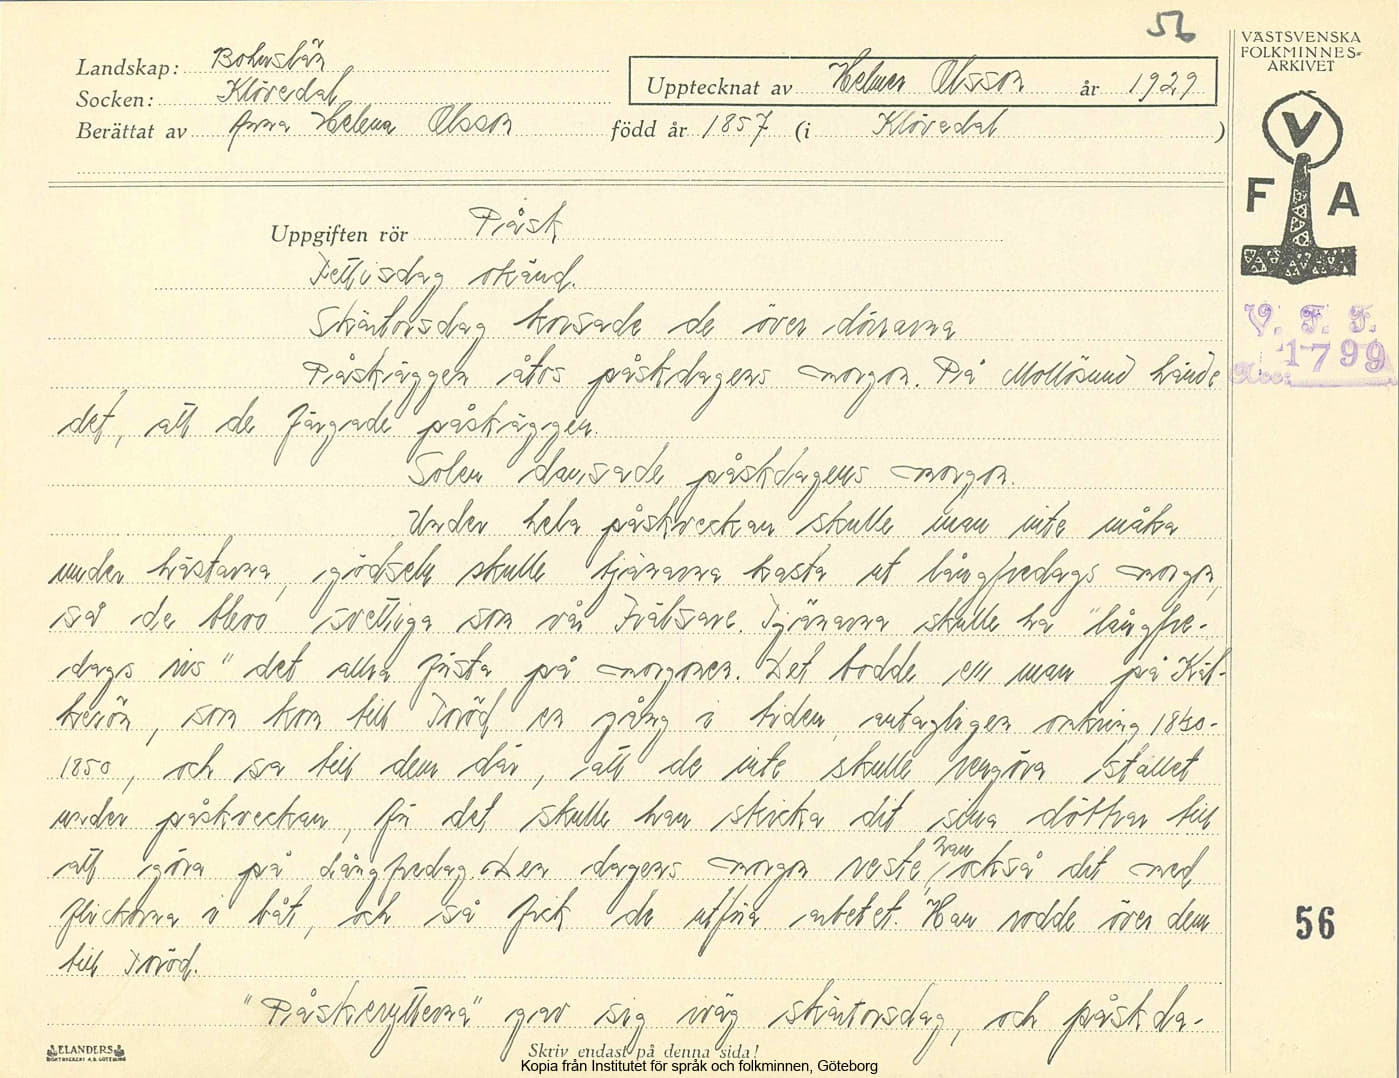 56
VÄSTSVENSKA
FOLKMINNES-
ARKIVET
Landskap: Bohuslän
Socken: Klövedal
Upptecknat av Helmer Olsson år 1929
Berättat av Anna Helena Olsson född år 1857 (i Klövedal )
V
F A
Uppgiften rör Påsk
Fettisdag okänd.
Skärtorsdag korsade de över dörrarna
Påskäggen åtos påskdagens morgon. På Mollösund hände
det, att de färgade påskäggen.
Solen dansade påskdagens morgon.
Under hela påskveckan skulle man inte måka
under hästarna, gödseln skulle tjänarna kasta ut långfredags morgon,
så de blevo svettiga som vår Frälsare. Tjänarna skulle ha "långfre-
dags ris" det allra första på morgonen. Det bodde en man på Kåt-
kerön, som kom till Toröd en gång i tiden, antagligen omkring 1840-
1850, och sa till dem där, att de inte skulle rengöra stallet
under påskveckan, för det skulle han skicka dit sina döttrar till
att göra på Långfredag. Den dagens morgon reste han också dit med
flickorna i båt, och så fick de utföra arbetet. Han rodde över dem
till Toröd.
"Påskerytterna" gav sig iväg skärtorsdag, och påskda-
V. F. F.
1799
Acc:
56
ELANDERS
BOKTRYCKERI A.B. GÖTEBORG
Skriv endast på denna sida!
Kopia från Institutet för språk och folkminnen, Göteborg